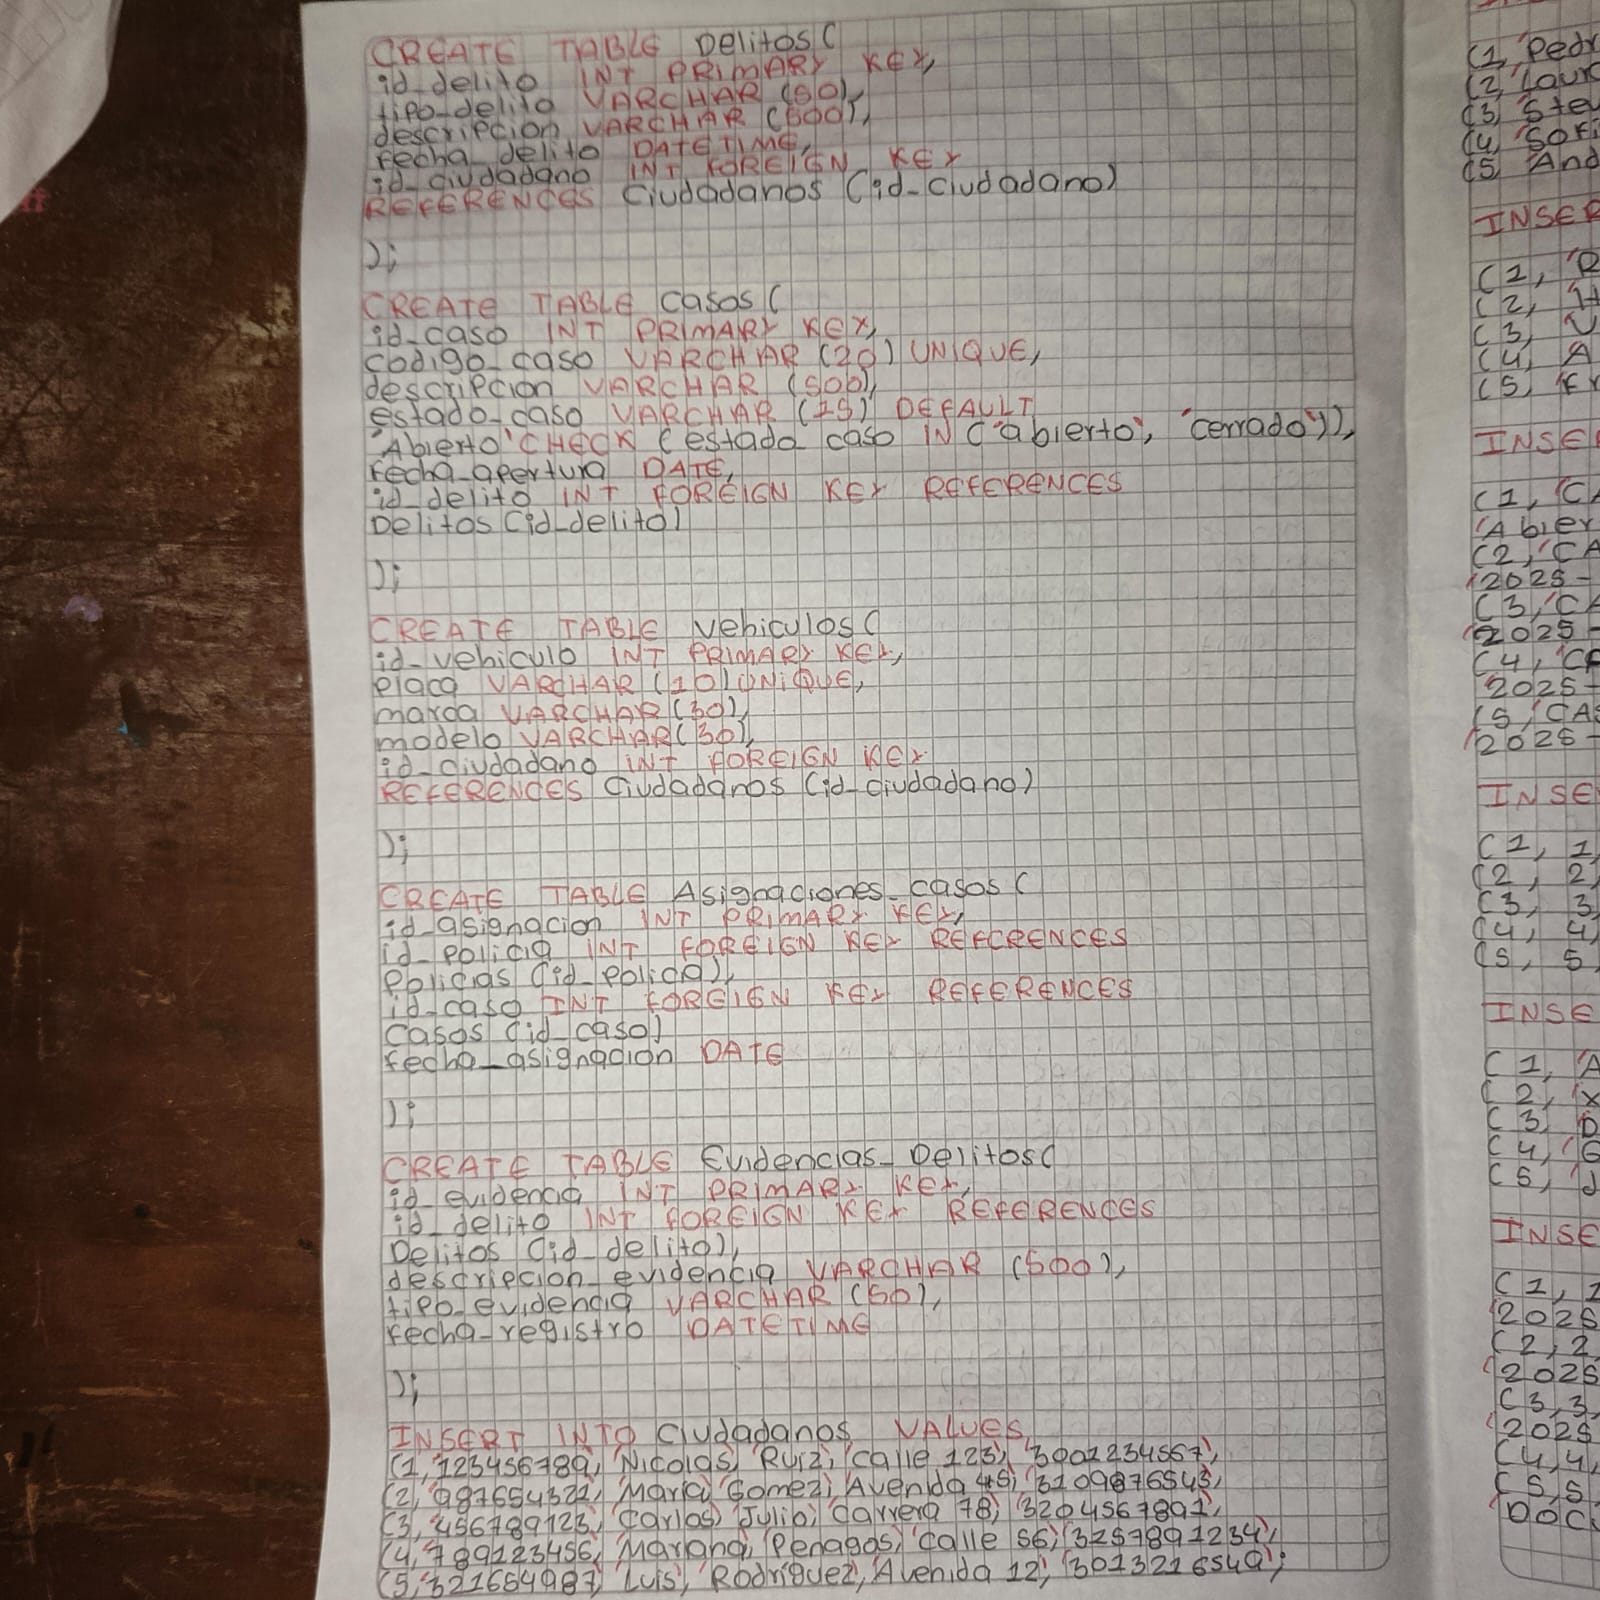 CREATE TABLE Delitos(
id_delito INT PRIMARY KEY,
tipo_delito VARCHAR (50),
descripcion VARCHAR (500),
fecha_delito DATETIME,
id_ciudadano INT FOREIGN KEY
REFERENCES Ciudadanos (id_ciudadano)
);
CREATE TABLE Casos(
id_caso INT PRIMARY KEY,
codigo_caso VARCHAR (20) UNIQUE,
descripcion VARCHAR (500),
estado_caso VARCHAR (15) DEFAULT
'Abierto' CHECK (estado_caso IN ('abierto', 'cerrado')),
fecha_apertura DATE,
id_delito INT FOREIGN KEY REFERENCES
Delitos (id_delito)
);
CREATE TABLE Vehiculos(
id_vehiculo INT PRIMARY KEY,
placa VARCHAR (10) UNIQUE,
marca VARCHAR (30),
modelo VARCHAR (30),
id_ciudadano INT FOREIGN KEY
REFERENCES Ciudadanos (id_ciudadano)
);
CREATE TABLE Asignaciones_casos(
id_asignacion INT PRIMARY KEY,
id_policia INT FOREIGN KEY REFERENCES
Policias (id_policia),
id_caso INT FOREIGN KEY REFERENCES
Casos (id_caso)
fecha_asignacion DATE
);
CREATE TABLE Evidencias_Delitos(
id_evidencia INT PRIMARY KEY,
id_delito INT FOREIGN KEY REFERENCES
Delitos (id_delito),
descripcion_evidencia VARCHAR (500),
tipo_evidencia VARCHAR (50),
fecha_registro DATETIME
);
INSERT INTO Ciudadanos VALUES
(1, '123456789', 'Nicolas', 'Ruiz', 'calle 123', '3001234567'),
(2, '987654321', 'Maria', 'Gomez', 'Avenida 45', '3109876543'),
(3, '456789123', 'Carlos', 'Julio', 'Carrera 78', '3204567891'),
(4, '789123456', 'Mariana', 'Penagos', 'Calle 56', '3257891234'),
(5, '321654987', 'Luis', 'Rodriguez', 'Avenida 12', '3013216549');
(1, 'Pedr
(2, 'Laur
(3, 'Stev
(4, 'Sofi
(5, 'And
INSER
(1, 'R
(2, 'H
(3, 'V
(4, 'A
(5, 'Fr
INSE
(1, 'CA
'Abier
(2, 'CA
'2025-
(3, 'CA
'2025-
(4, 'CA
'2025-
(5, 'CAS
'2025-
INSE
(1, 1
(2, 2,
(3, 3,
(4, 4,
(5, 5,
INSE
(1, 'A
(2, 'X
(3, 'D
(4, 'G
(5, 'J
INSE
(1, 1
'2025
(2, 2
'2025
(3, 3,
'2025
(4, 4,
(5, 5
'DOC